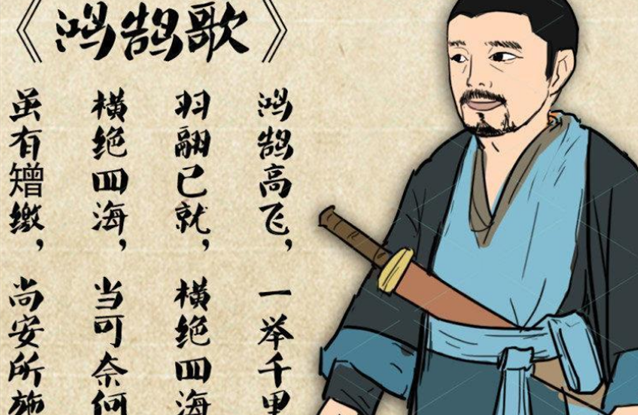 《鸿鹄歌》
鸿鹄高飞，一举千里
羽翮已就，横绝四海
横绝四海，当可奈何
虽有矰缴，尚安所施